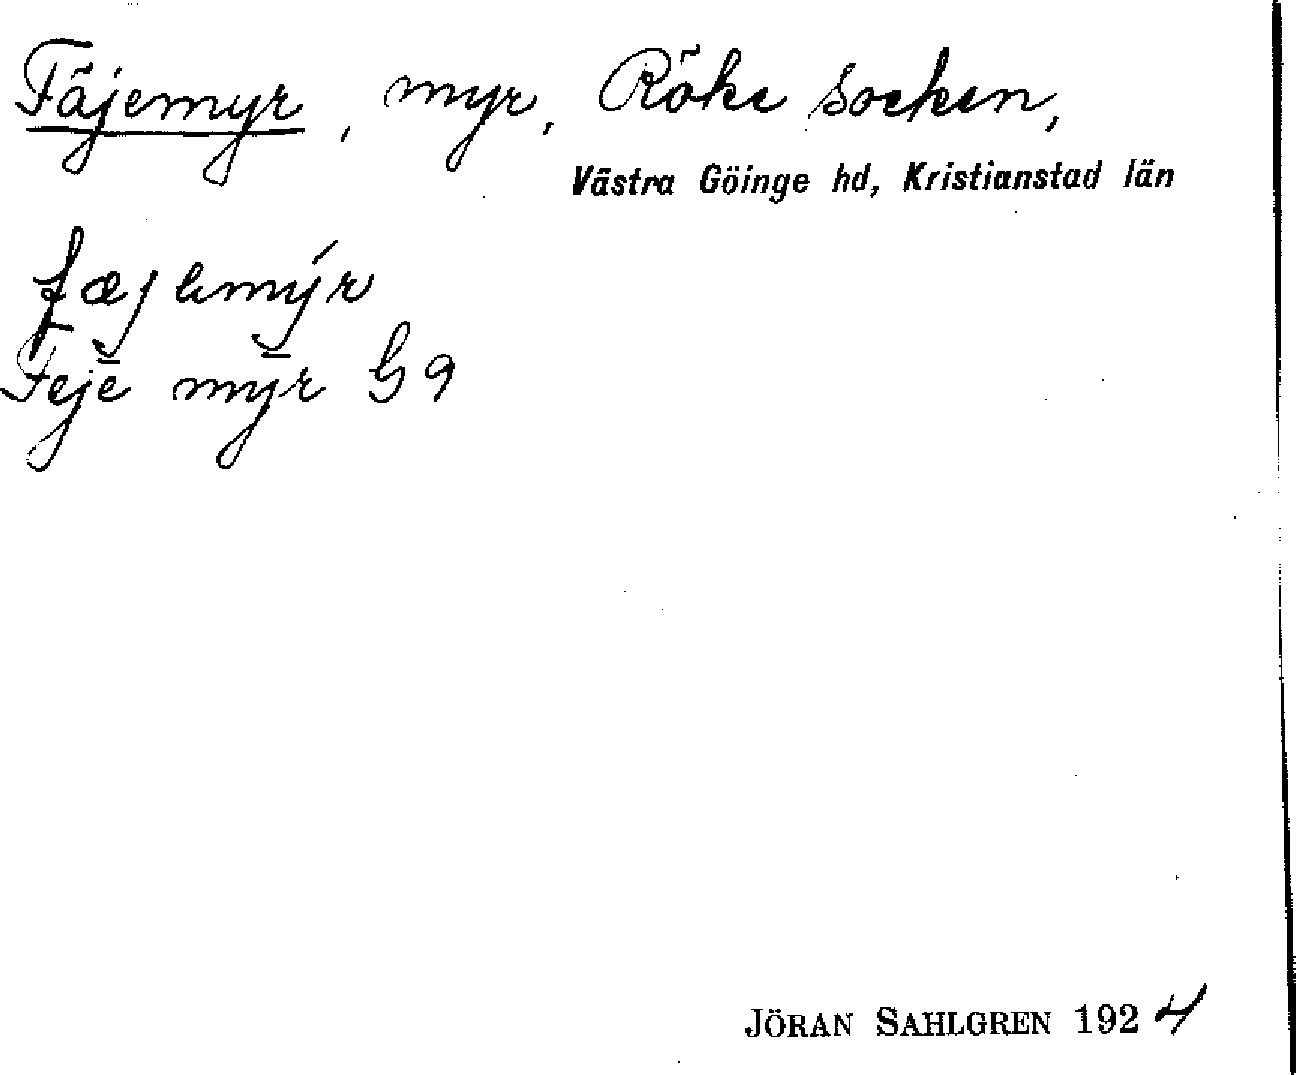 Fäjemyr, myr, Röke socken,
Västra Göinge hd, Kristianstad län
fæjemýr
Feje myr G 9
JÖRAN SAHLGREN 1924